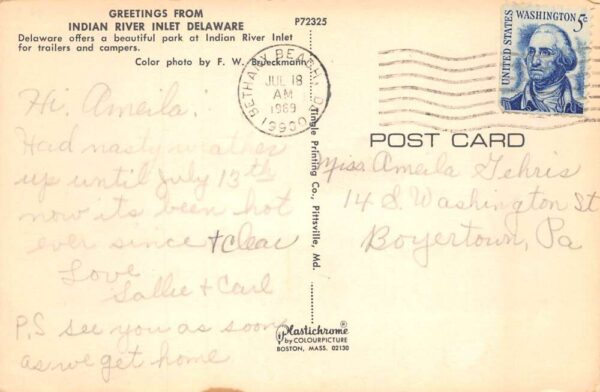 GREETINGS FROM
INDIAN RIVER INLET DELAWARE
Delaware offers a beautiful park at Indian River Inlet
for trailers and campers.
Color photo by F. W. Brueckmann
P72325
Hi, Ameila:
Had nasty weather
up until July 13th
now its been hot
ever since + clear
Love
Sallie + Carl
P.S see you as soon
as we get home
Tingle Printing Co., Pittsville, Md.
Plastichrome®
by COLOURPICTURE
BOSTON, MASS. 02130
BETHANY BEACH, D
19930
JUL 18
AM
1969
UNITED STATES
WASHINGTON 5c
POST CARD
Miss. Ameila Gehris
14 S. Washington St
Boyertown, Pa